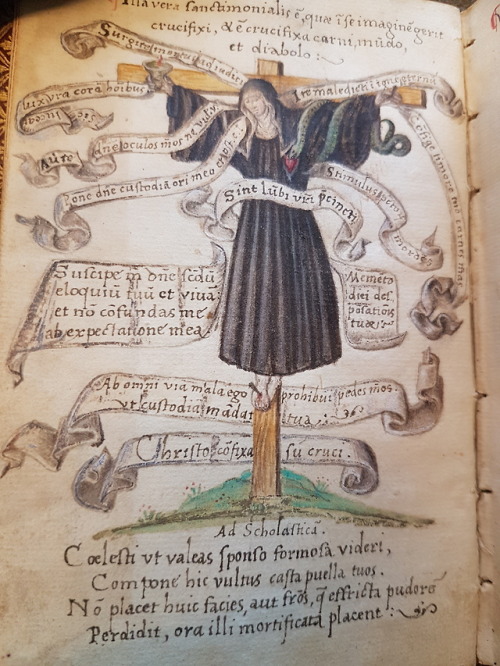 Illa vera sanctimonialis ē, quæ ī se imaginē gerit
crucifixi, & ē crucifixa carni, mūdo,
et diabolo:
Surgite mortui
Ite maledicti ī ignē eternū
luxura corā hoībus
Auerte oculos mos ne
Pone dnē custodia ori meo
Sint lūbi vrī pcincti
Stimulus
Suscipe m dnē scdū
eloquiū tuū et viuā
et nō cōfundas me
ab expectatione mea
Memēto
Ab omni via mala ego prohibui pedes mos
vt custodiā mādata tua
Christo cōfixa sū cruci.
Ad Scholasticā.
Cœlesti vt valeas sponso formosa videri,
Compone hic vultus casta puella tuos.
Nō placet huic facies, aut frōs, q̄ effricta pudorē
Perdidit, ora illi mortificata placent: